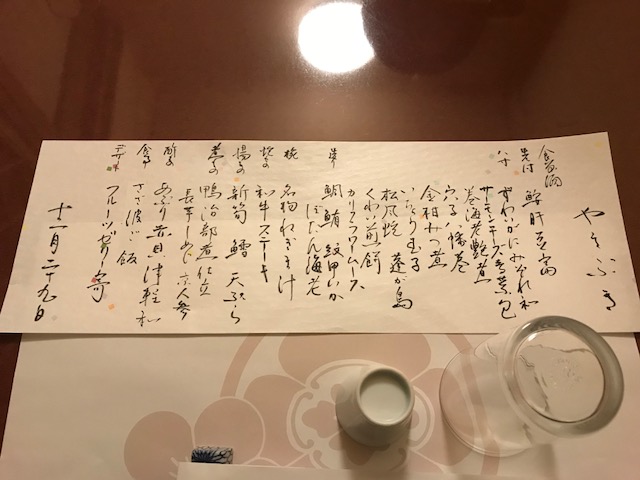 やまぶき
食前酒
先付 鮟肝豆富
八寸 ずわいがにみぞれ和
サーモンチーズ 包
巻海老艶煮
穴子八幡巻
金柑みつ煮
いなり玉子
松風焼 蓬が島
くわい煎餅
カリフラワームース
造り 鯛 鮪 紋甲いか
ぼたん海老
椀 名物ねぎま汁
焼もの 和牛ステーキ
揚もの 新筍 鱈 天ぷら
煮もの 鴨治部煮仕立
長芋 しめじ 京人参
酢もの あぶり青貝津軽和
食事 さざ波ご飯
デザート フルーツゼリー寄
十二月二十九日